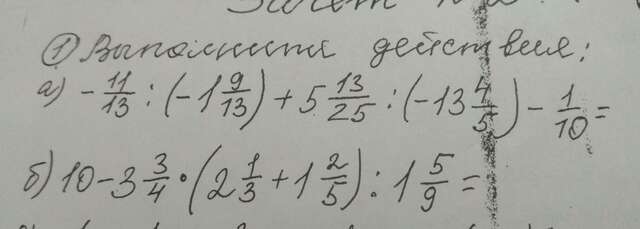 Зачет
① Выполните действия:
а) -11/13 : (-1 9/13) + 5 13/25 : (-13 4/5) - 1/10 =
б) 10 - 3 3/4 · (2 1/3 + 1 2/5) : 1 5/9 =